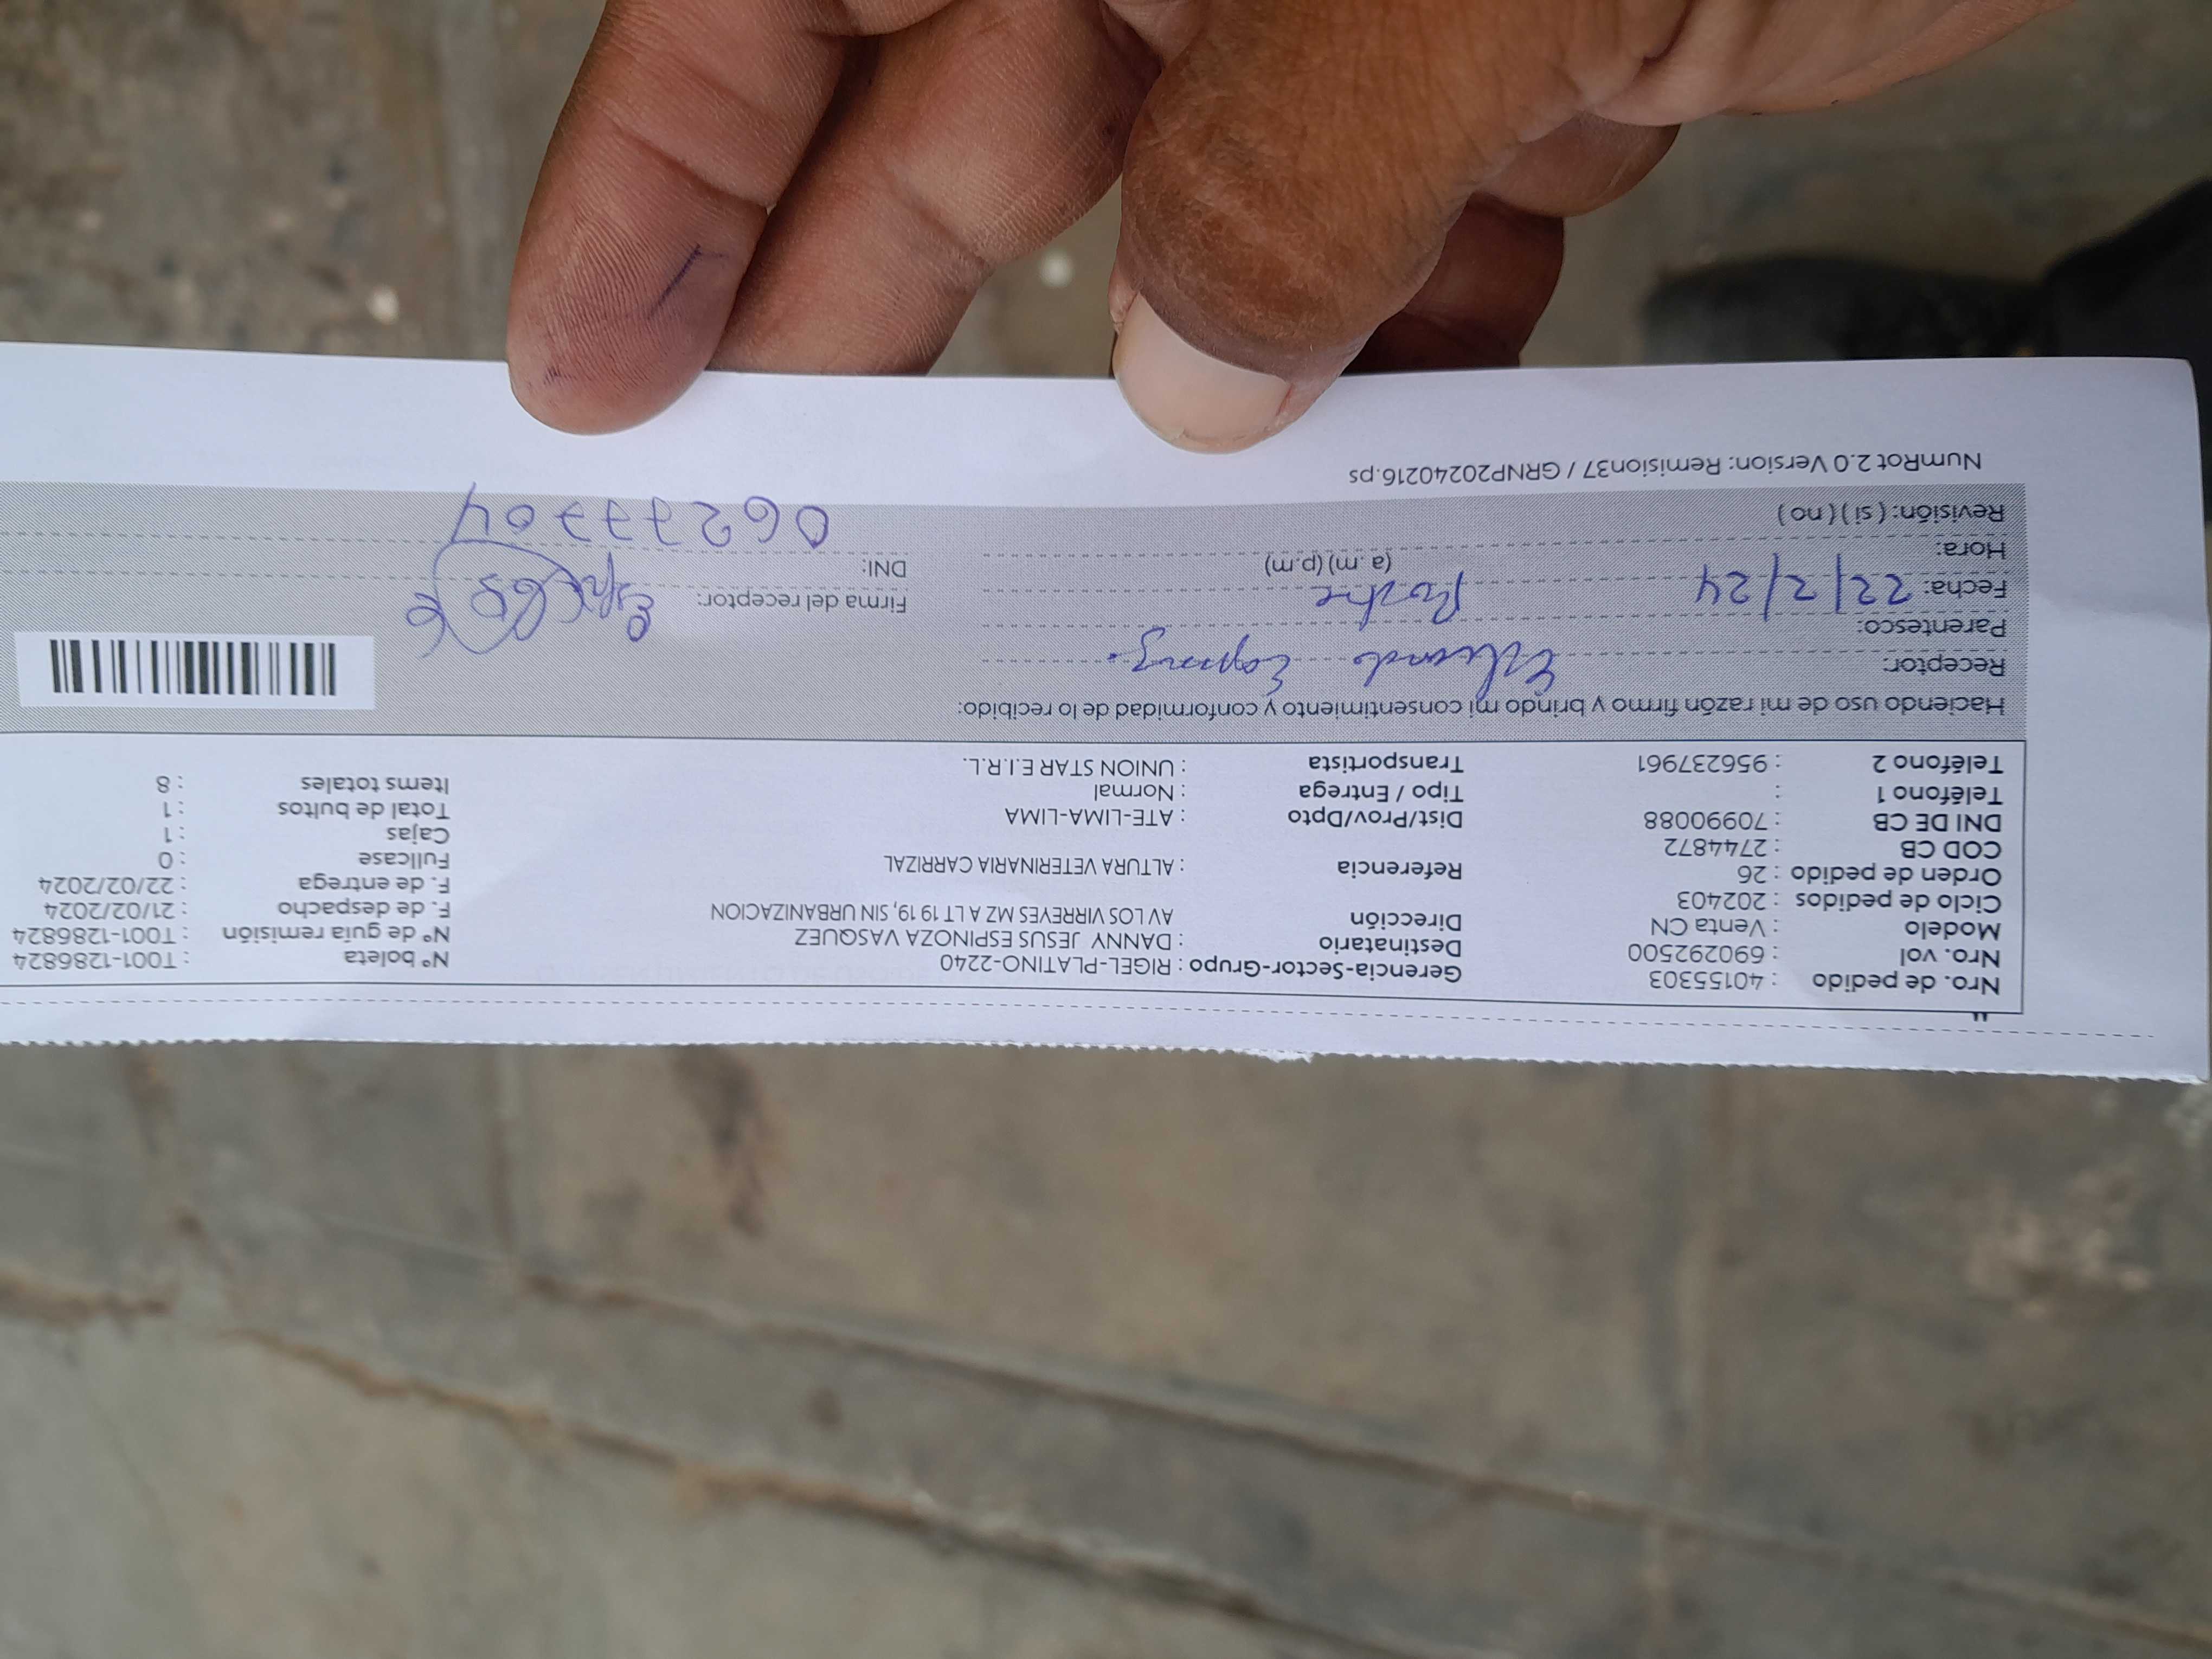 Nro. de pedido : 40155303
Nro. vol : 690292500
Modelo : Venta CN
Ciclo de pedidos : 202403
Orden de pedido : 26
COD CB : 2744872
DNI DE CB : 70990088
Teléfono 1 :
Teléfono 2 : 956237961
Gerencia-Sector-Grupo : RIGEL-PLATINO-2240
Destinatario : DANNY JESUS ESPINOZA VASQUEZ
Dirección AV LOS VIRREYES MZ A LT 19 19, SIN URBANIZACION
Referencia : ALTURA VETERINARIA CARRIZAL
Dist/Prov/Dpto : ATE-LIMA-LIMA
Tipo / Entrega : Normal
Transportista : UNION STAR E.I.R.L.
N° boleta : T001-1286824
N° de guía remisión : T001-1286824
F. de despacho : 21/02/2024
F. de entrega : 22/02/2024
Fullcase : 0
Cajas : 1
Total de bultos : 1
Items totales : 8
Haciendo uso de mi razón firmo y brindo mi consentimiento y conformidad de lo recibido:
Receptor:
Parentesco:
Fecha: 22/2/24
Hora: (a.m) (p.m)
Revisión: ( si ) ( no )
Firma del receptor:
DNI: 06277704
NumRot 2.0 Version: Remision37 / GRNP20240216.ps